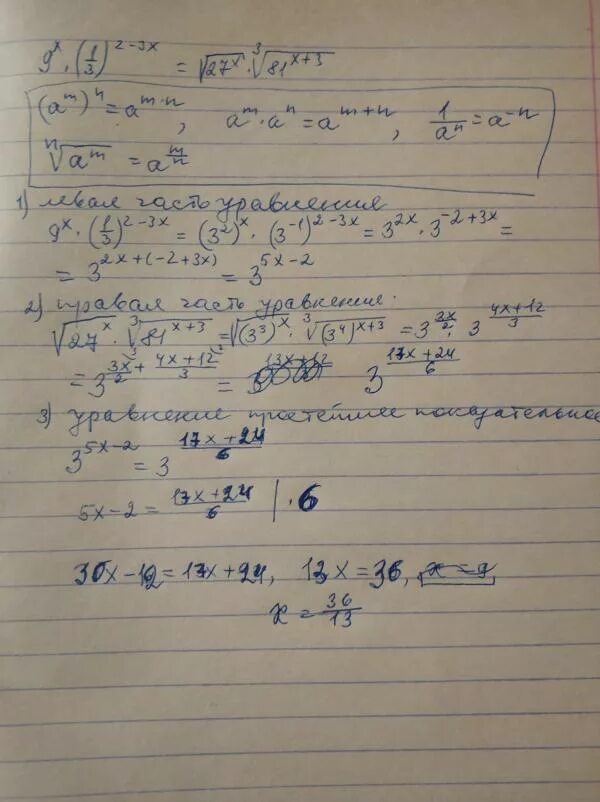 9^x · (1/3)^(2-3x) = √27^x · ∛81^(x+3)
(a^m)^n = a^(m·n), a^m · a^n = a^(m+n), 1/a^n = a^(-n)
ⁿ√a^m = a^(m/n)
1) левая часть уравнения
9^x · (1/3)^(2-3x) = (3^2)^x · (3^(-1))^(2-3x) = 3^(2x) · 3^(-2+3x) =
= 3^(2x+(-2+3x)) = 3^(5x-2)
2) правая часть уравнения:
√27^x · ∛81^(x+3) = √(3^3)^x · ∛(3^4)^(x+3) = 3^(3x/2) · 3^((4x+12)/3)
= 3^(3x/2 + (4x+12)/3) = 3^((17x+24)/6)
3) уравнение простейшее показательное
3^(5x-2) = 3^((17x+24)/6)
5x-2 = (17x+24)/6 | · 6
30x-12 = 17x+24, 13x = 36, x = 9
x = 36/13